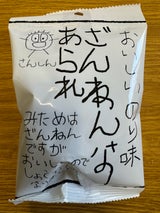 おいしいのり味
ざんねんな
あられ
ざんねん
みためは
ざんねん
ですが
おいしいので